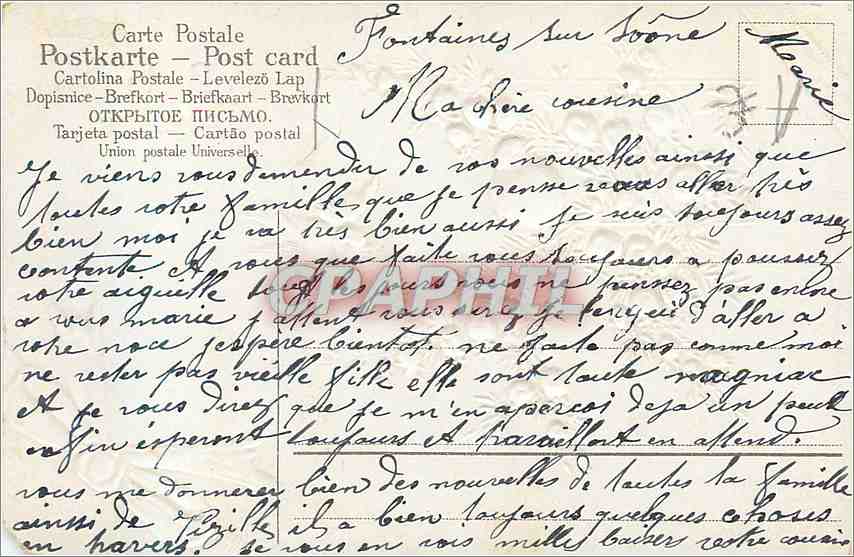 Carte Postale
Postkarte – Post card
Cartolina Postale – Levelezö Lap
Dopisnice – Brefkort – Briefkaart – Brevkort
ОТКРЫТОЕ ПИСЬМО.
Tarjeta postal — Cartão postal
Union postale Universelle.
Fontaines sur Soône
Marie
Ma chère cousine
Je viens vous demender de vos nouvelles ainsi que
toutes votre famille que je pense vous aller très
bien moi je va très bien aussi je suis toujours assez
contente. Et vous que faite vous toujours a poussez
votre aiguille tout les jours vous ne penssez pas encore
a vous marie j'attent vous sirez je d'aller a
votre noce j'espère bientot. ne faite pas comme moi
ne rester pas vieille fille elle sont toute magniac
Et je vous direz que je m'en apercoi deja un peut
enfin ésperont toujours et travaillont en attend.
vous me donnerer bien des nouvelles de toutes la famille
ainsi de Vizille il a bien toujours quelques choses
en travers. je vous en vois mille baiser votre cousine
CPAPHIL